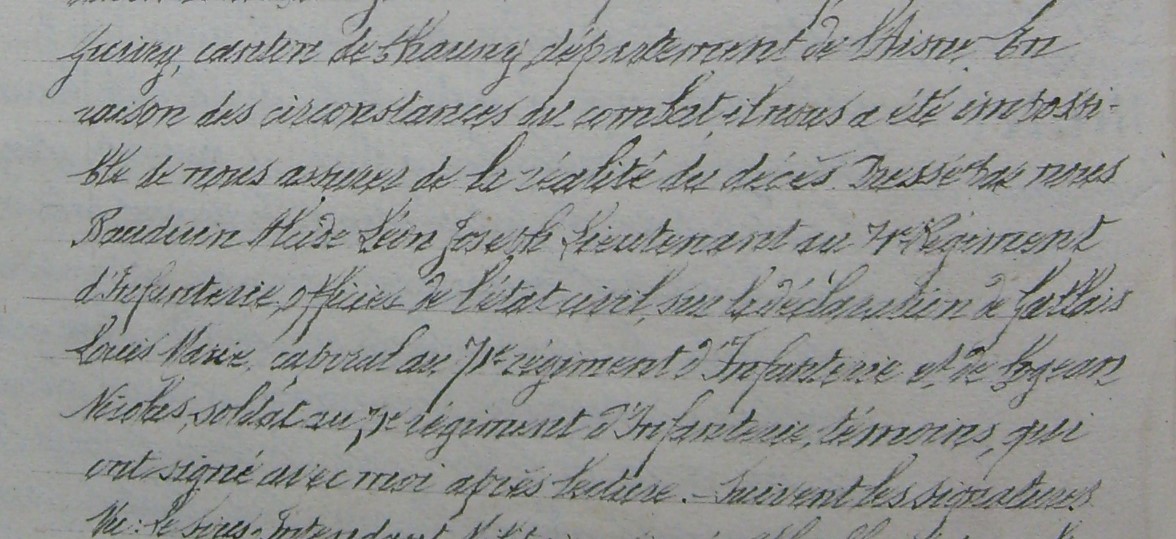 canton de Chauny département de l'Aisne En
raison des circonstances du combat, il nous a été impossi-
ble de nous assurer de la réalité du décès. Dressé par nous
Baudouin Léon Joseph Lieutenant au 71e Régiment
d'Infanterie, officier de l'état civil, sur la déclaration de
Louis Marie, caporal au 71e régiment d'Infanterie et de
Nicolas, soldat au 71e régiment d'Infanterie, témoins, qui
ont signé avec moi après lecture. - Suivent les signatures
Vu: Le Sous-Intendant